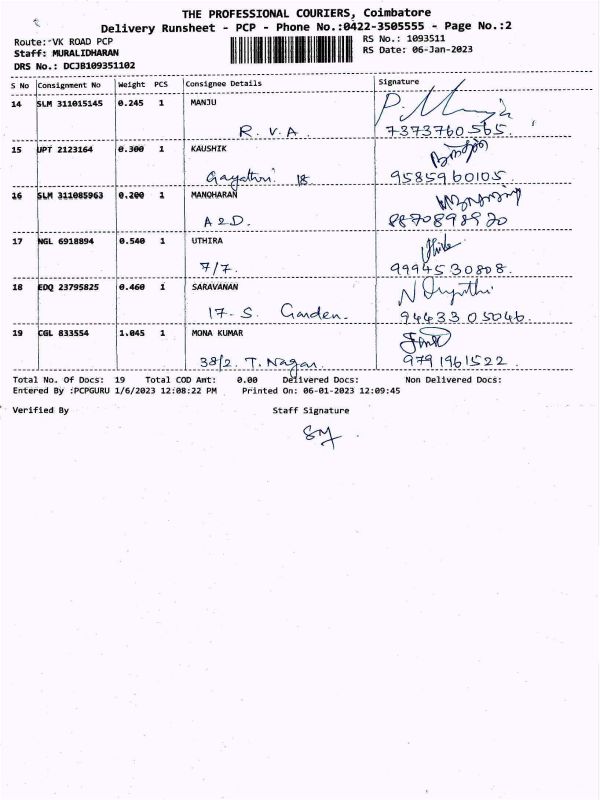 THE PROFESSIONAL COURIERS, Coimbatore
Delivery Runsheet - PCP - Phone No.:0422-3505555 - Page No.:2
Route:-VK ROAD PCP RS No.: 1093511
Staff: MURALIDHARAN RS Date: 06-Jan-2023
DRS No.: DCJB109351102
S No Consignment No Weight PCS Consignee Details Signature
14 SLM 311015145 0.245 1 MANJU
R.V.A. 7373760565.
15 UPT 2123164 0.300 1 KAUSHIK
Gayathri 18 9585960105.
16 SLM 311085963 0.200 1 MANOHARAN
A2D. 8870898920
17 NGL 6918894 0.540 1 UTHIRA
7/7. 9994530808.
18 EDQ 23795825 0.460 1 SARAVANAN
17-S. Garden. 9443305046.
19 CGL 833554 1.045 1 MONA KUMAR
38/2. T. Nagar. 9791961522.
Total No. Of Docs: 19 Total COD Amt: 0.00 Delivered Docs: Non Delivered Docs:
Entered By :PCPGURU 1/6/2023 12:08:22 PM Printed On: 06-01-2023 12:09:45
Verified By Staff Signature